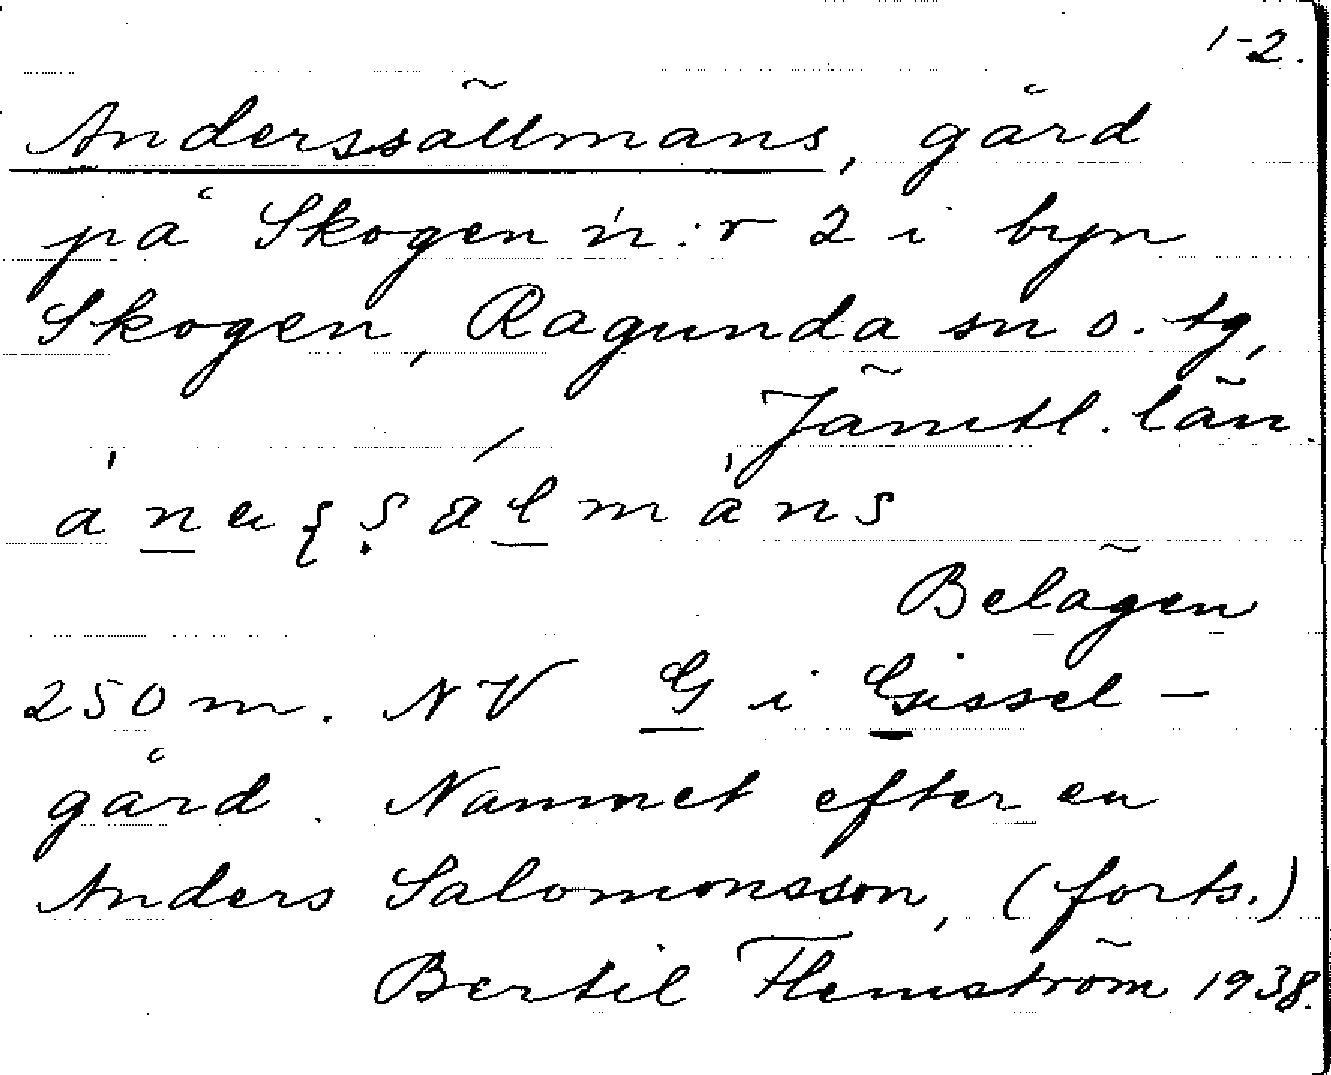 1-2.
Anderssällmans, gård
på Skogen n:r 2 i byn
Skogen, Ragunda sn o. tg,
Jämtl. län.
Belägen
250 m. NV G i Gissel-
gård. Namnet efter en
Anders Salomonsson, (forts.)
Bertil Flemström 1938.